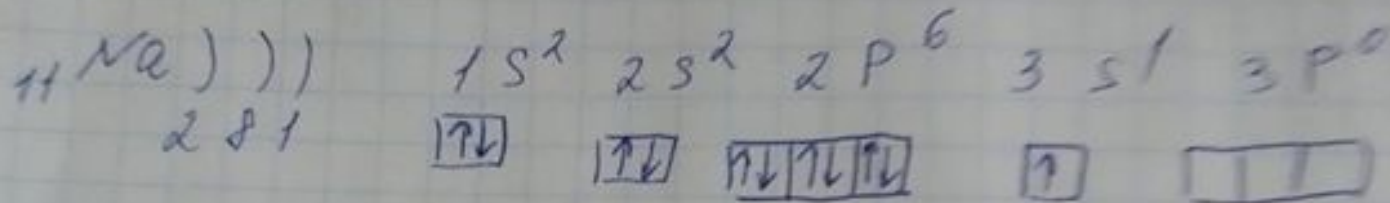 ₁₁Na ) ) ) 1s² 2s² 2p⁶ 3s¹ 3p⁰
2 8 1 |↑↓| |↑↓| |↑↓|↑↓|↑↓| |↑| | | | |